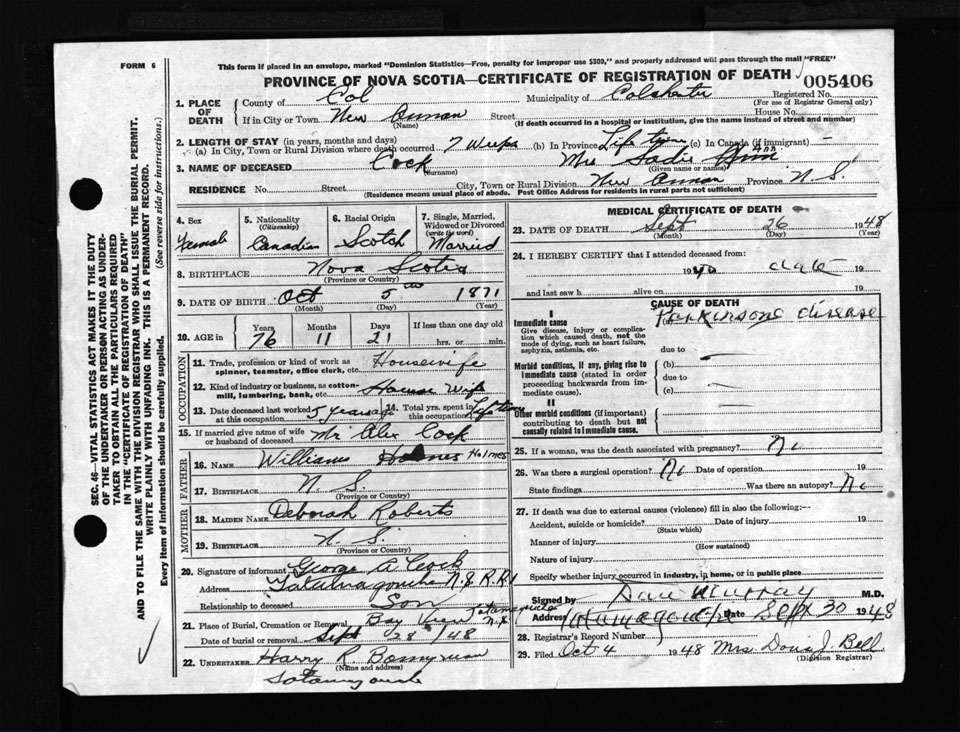 FORM 6
This form if placed in an envelope, marked "Dominion Statistics—Free, penalty for improper use $300," and properly addressed will pass through the mail "FREE"
PROVINCE OF NOVA SCOTIA—CERTIFICATE OF REGISTRATION OF DEATH
005406
1. PLACE OF DEATH
County of Col Municipality of Colchester Registered No.
(For use of Registrar General only)
If in City or Town New Annan Street House No.
(Name) (If death occurred in a hospital or institution, give the name instead of street and number)
2. LENGTH OF STAY (in years, months and days)
(a) In City, Town or Rural Division where death occurred 7 Weeks (b) In Province Life time (c) In Canada (if immigrant) —
3. NAME OF DECEASED Cock Mrs Sadie Ann
(Surname) (Given name or names)
RESIDENCE No. Street City, Town or Rural Division New Annan Province N. S.
(Residence means usual place of abode. Post Office Address for residents in rural parts not sufficient)
4. Sex Female
5. Nationality (Citizenship) Canadian
6. Racial Origin Scotch
7. Single, Married, Widowed or Divorced (write the word) Married
8. BIRTHPLACE Nova Scotia
(Province or Country)
9. DATE OF BIRTH Oct 5th 1871
(Month) (Day) (Year)
10. AGE in Years 76 Months 11 Days 21 If less than one day old hrs. or min.
OCCUPATION
11. Trade, profession or kind of work as spinner, teamster, office clerk, etc. Housewife
12. Kind of industry or business, as cotton-mill, lumbering, bank, etc. House Wife
13. Date deceased last worked at this occupation 5 years ago 14. Total yrs. spent in this occupation Life time
15. If married give name of wife or husband of deceased Mr Alex Cock
FATHER
16. NAME William Holmes Holmes
17. BIRTHPLACE N. S.
(Province or Country)
MOTHER
18. MAIDEN NAME Deborah Roberts
19. BIRTHPLACE N. S.
(Province or Country)
20. Signature of informant George A Cock
Address Tatamagouche N.S R.R1
Relationship to deceased Son
21. Place of Burial, Cremation or Removal Bay View Tatamagouche N.S
Date of burial or removal Sept 28/48
22. UNDERTAKER Harry R. Bonnyman
(Name and address)
Tatamagouche
MEDICAL CERTIFICATE OF DEATH
23. DATE OF DEATH Sept 26 1948
(Month) (Day) (Year)
24. I HEREBY CERTIFY that I attended deceased from:
19 to date 19
and last saw h alive on 19
CAUSE OF DEATH
I
Immediate cause (a) Parkinsons disease
Give disease, injury or complication which caused death, not the mode of dying, such as heart failure, asphyxia, asthenia, etc.
due to
Morbid conditions, if any, giving rise to immediate cause (stated in order proceeding backwards from immediate cause).
(b)
due to
(c)
II
Other morbid conditions (if important) contributing to death but not causally related to immediate cause.
25. If a woman, was the death associated with pregnancy? No
26. Was there a surgical operation? No Date of operation
State findings Was there an autopsy? No
27. If death was due to external causes (violence) fill in also the following:—
Accident, suicide or homicide? Date of injury 19
(State which)
Manner of injury
(How sustained)
Nature of injury
Specify whether injury occurred in industry, in home, or in public place
Signed by Dan Murray M.D.
Address Tatamagouche Date Sept 30 1948
28. Registrar's Record Number
29. Filed Oct 4 1948 Mrs. Donia J Bell
(Division Registrar)
SEC. 46—VITAL STATISTICS ACT MAKES IT THE DUTY
OF THE UNDERTAKER OR PERSON ACTING AS UNDER-
TAKER TO OBTAIN ALL THE PARTICULARS REQUIRED
IN THE "CERTIFICATE OF REGISTRATION OF DEATH"
AND TO FILE THE SAME WITH THE DIVISION REGISTRAR WHO SHALL ISSUE THE BURIAL PERMIT.
WRITE PLAINLY WITH UNFADING INK. THIS IS A PERMANENT RECORD.
Every item of information should be carefully supplied. (See reverse side for instructions.)